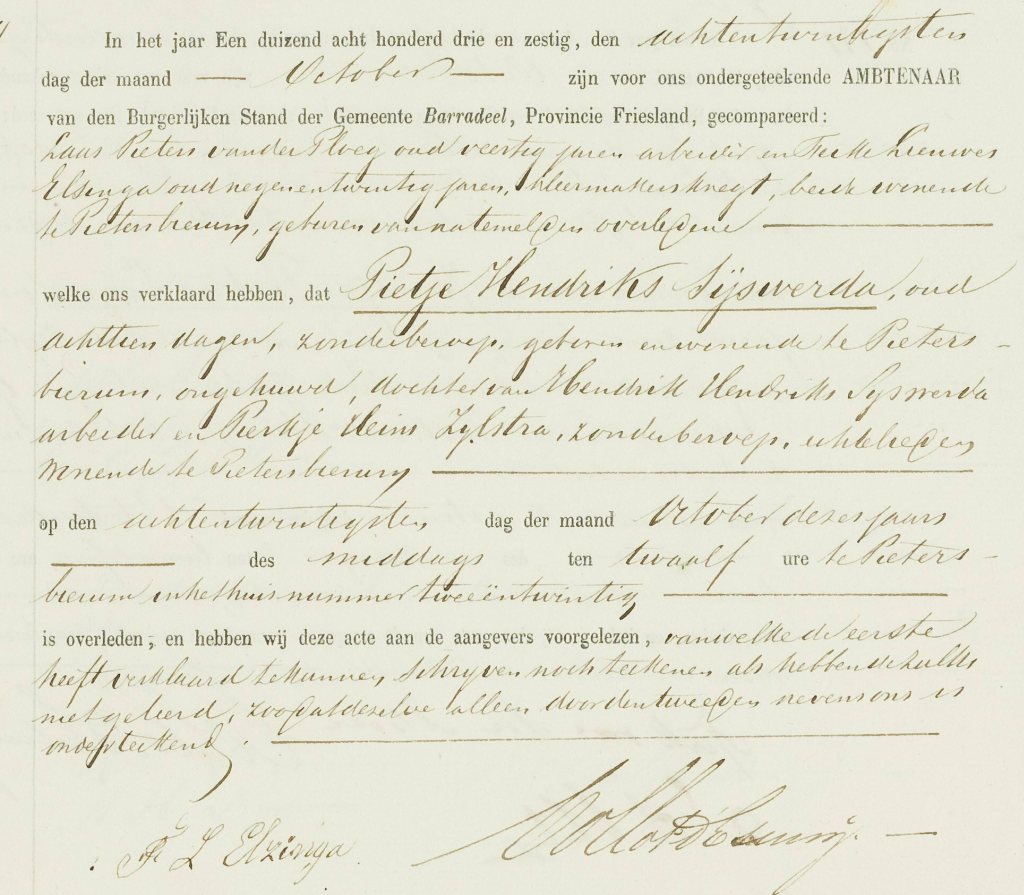 In het jaar Een duizend acht honderd drie en zestig, den achtentwintigsten
dag der maand — October — zijn voor ons ondergeteekende AMBTENAAR
van den Burgerlijken Stand der Gemeente Barradeel, Provincie Friesland, gecompareerd:
Laas Pieters van der Ploeg oud veertig jaren arbeider en Feike Lieuwes
Elsinga oud negenentwintig jaren, kleermakersknegt, beide wonende
te Pietersbierum, geburen van natemelden overledene —
welke ons verklaard hebben, dat Pietje Hendriks Sijswerda, oud
achttien dagen, zonder beroep, geboren en wonende te Pieters-
bierum, ongehuwd, dochter van Hendrik Hendriks Sijswerda
arbeider en Pierkje Heins Zylstra, zonder beroep, echtelieden
wonende te Pietersbierum —
op den achtentwintigsten dag der maand October dezes jaars
— des middags ten twaalf ure te Pieters-
bierum in het huis nummer tweeëntwintig —
is overleden, en hebben wij deze acte aan de aangevers voorgelezen, van welke de eerste
heeft verklaard te kunnen schryven noch teekenen als hebbende zulks
niet geleerd, zoodat dezelve alleen door den tweeden nevens ons is
onderteekend. —
F L Elzinga